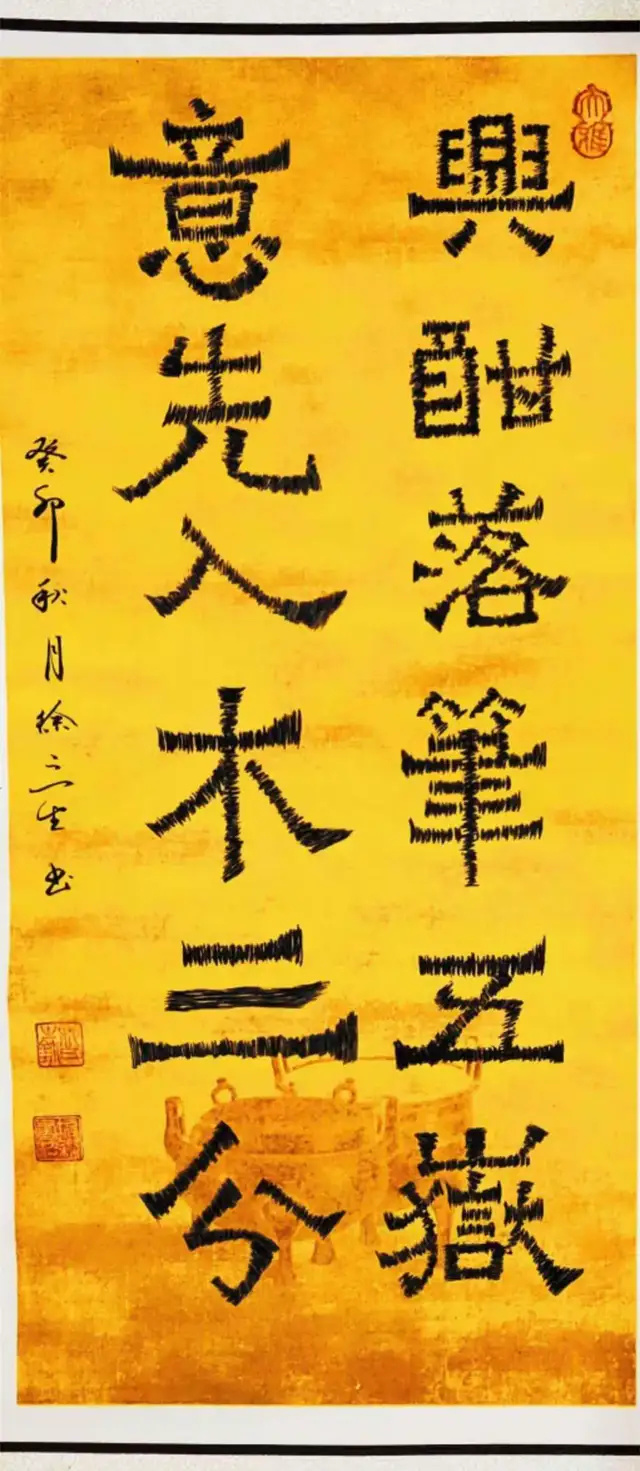 興酣落筆五嶽
意先入木三分
癸卯秋月徐三生书
大雅